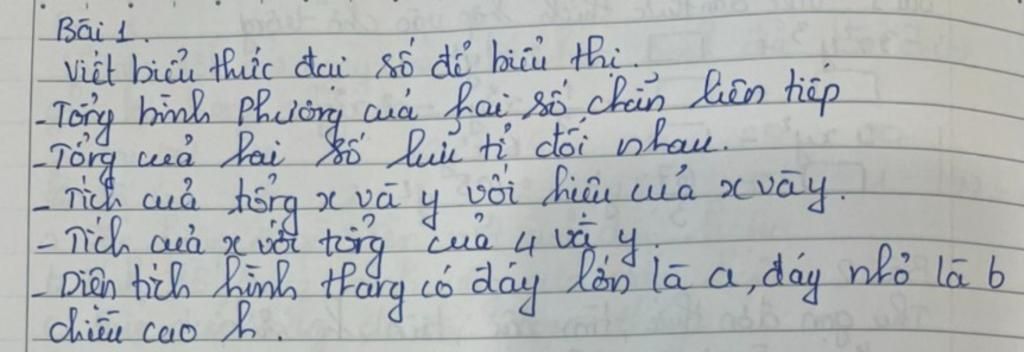 Bài 1.
Viết biểu thức đại số để biểu thị.
- Tổng bình phương của hai số chẵn liên tiếp
- Tổng của hai số hữu tỉ đối nhau.
- Tích của tổng x và y với hiệu của x và y.
- Tích của x với tổng của 4 và y.
- Diện tích hình thang có đáy lớn là a, đáy nhỏ là b
chiều cao h.